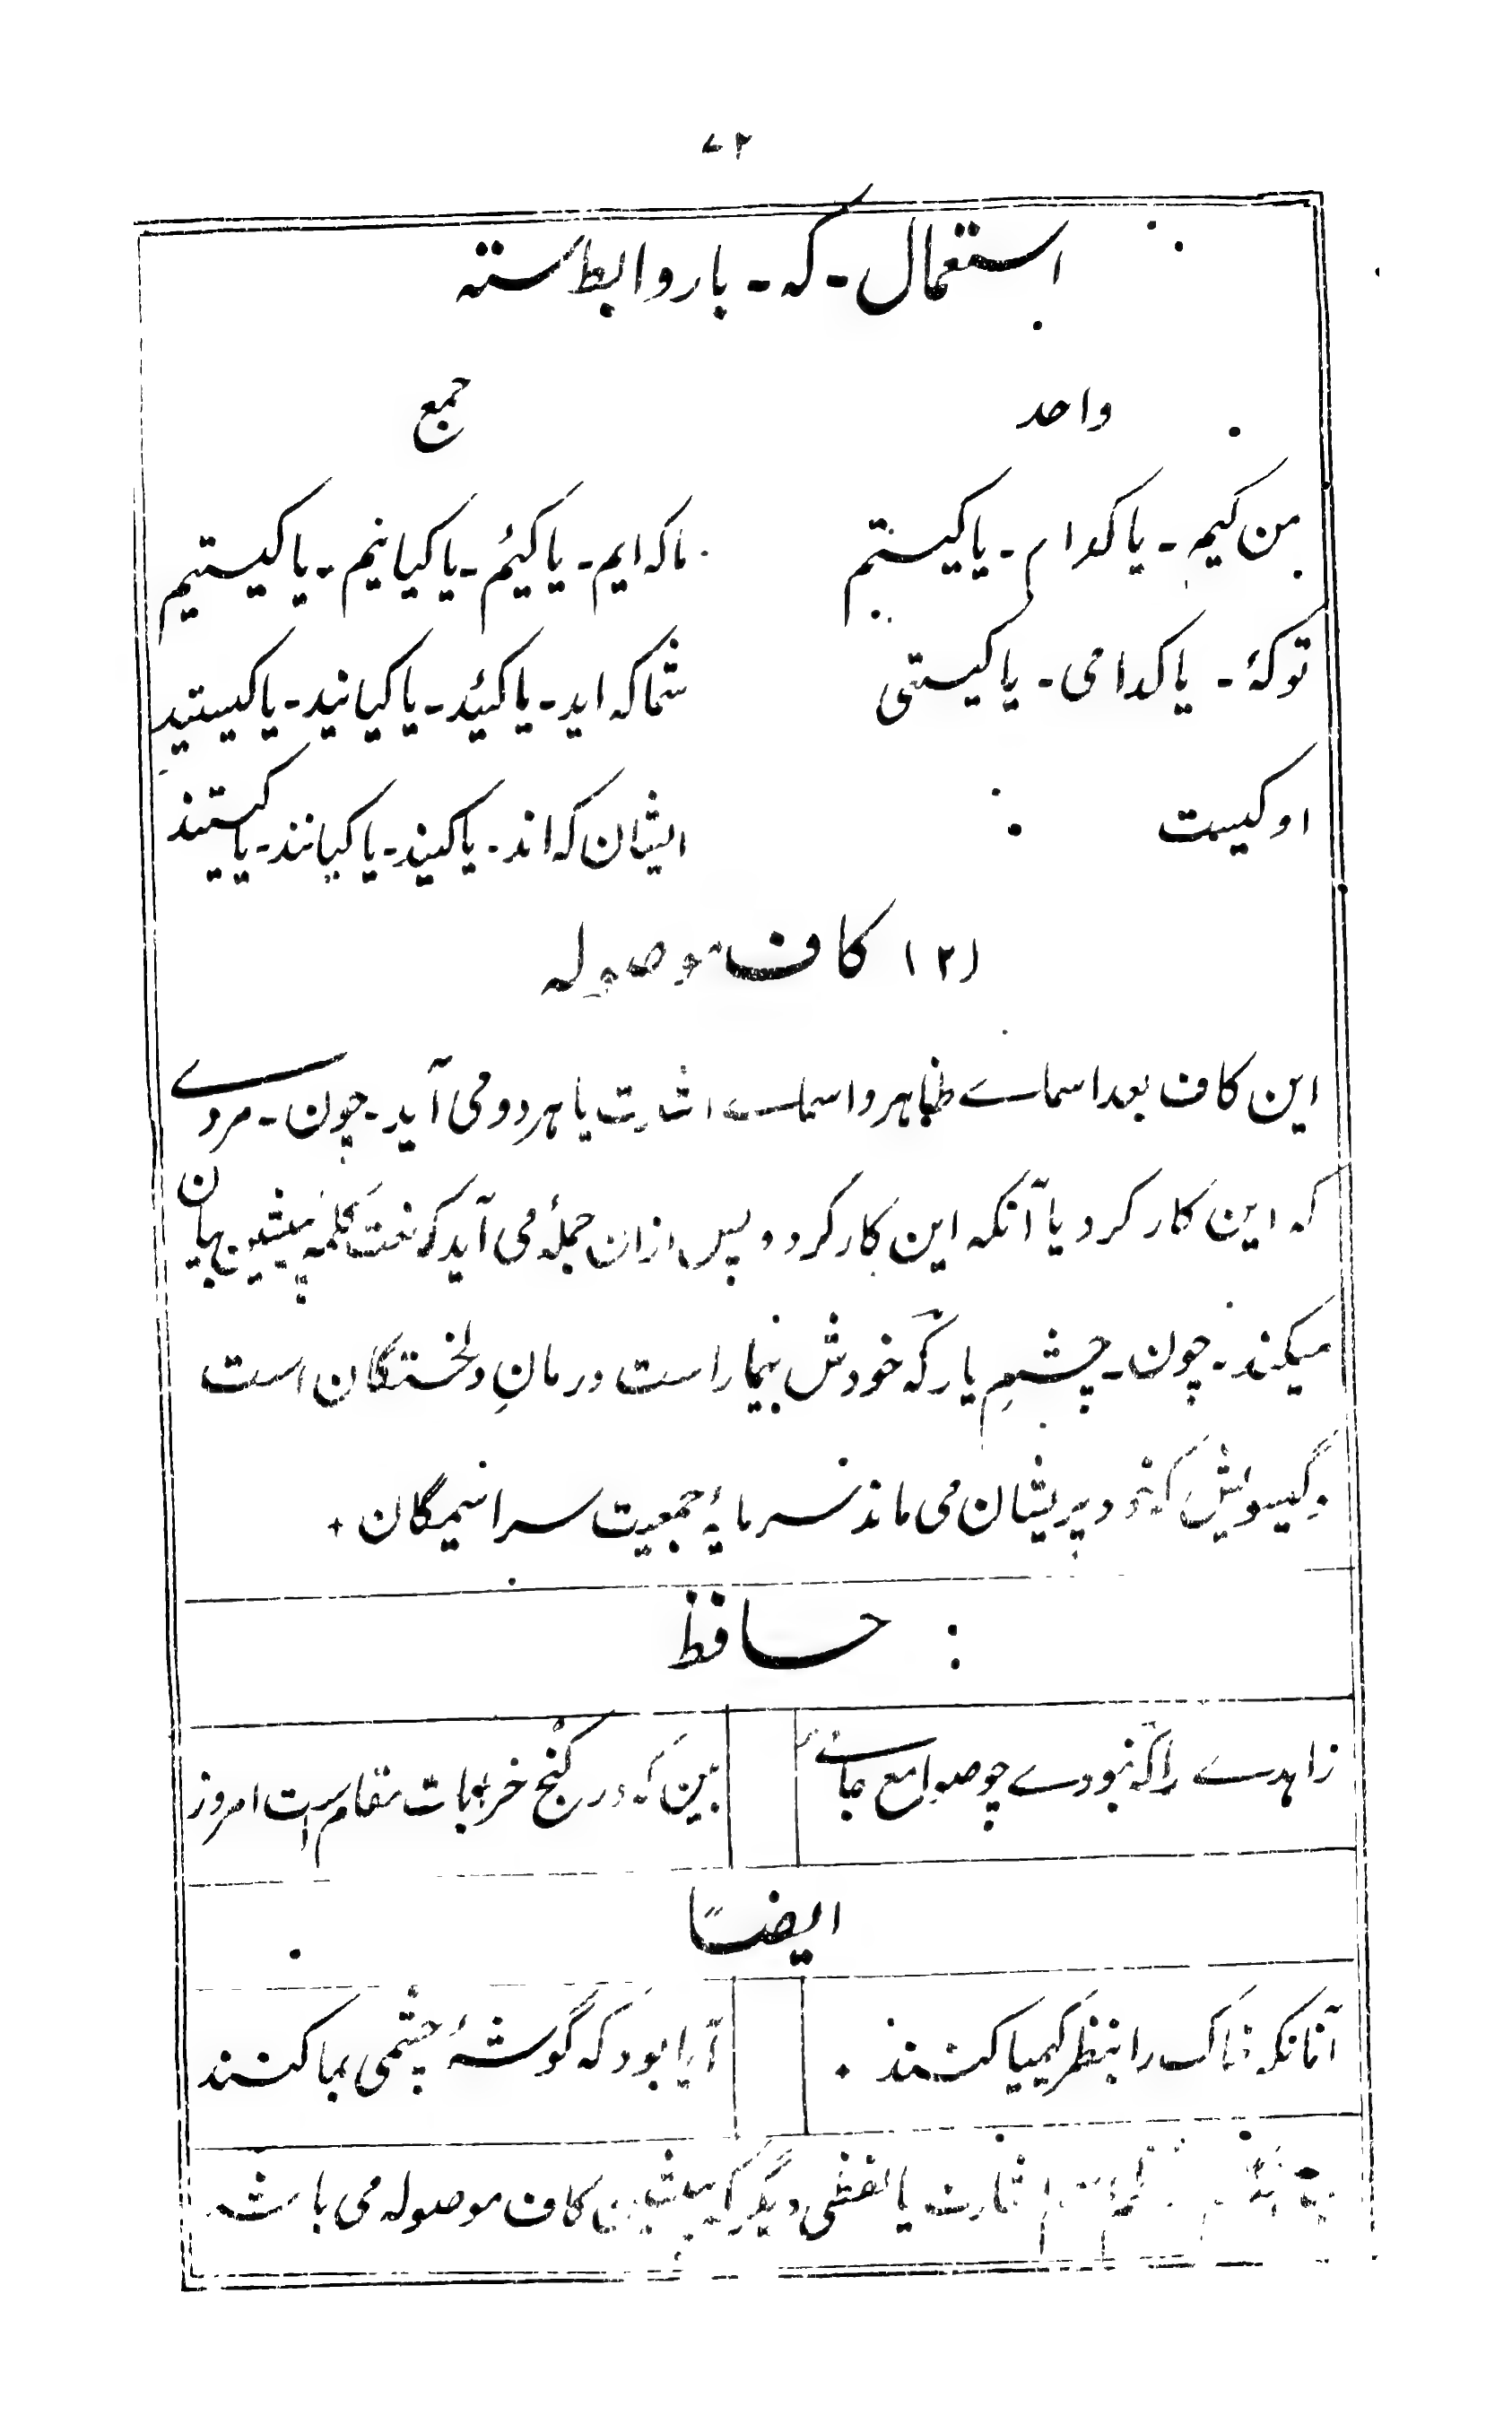 ۷۲
استعمال ـ که ـ باروابط سته
واحد
جمع
من کیم ـ یا کدام ـ یا کیستم
ما که ایم ـ یا کئیم ـ یا کیانیم ـ یا کیستیم
تو کۂ ـ یا کدامی ـ یا کیستی
شما که اید ـ یا کئید ـ یا کیانید ـ یا کیستید
او کیست
ایشان که اند ـ یا کیند ـ یا کیانند ـ یا کیستند
(۲) کاف موصوله
این کاف بعد اسماے ظاهر و اسماے اشارت یا هر دو می آید ـ چون ـ مردے
که این کار کرد یا آنکه این کار کرد و پس ازان جملۂ می آید که نعت کلمۂ پیشین بیان
میکند ـ چون ـ چشمِ یار که خودش بیمار است درمانِ دلخستگان است
گیسویش که خود پریشان می ماند سرمایۂ جمعیت سراسیمگان +
حافظ
زاهدے را که نبودے چو صوامع جائے
بین که در کنج خرابات مقام است امروز
ایضاً
آنانکه خاک را بنظر کیمیا کنند
آیا بود که گوشۂ چشمی بما کنند
اشارت یا لفظی دیگر که پیشین کاف موصوله می باشد